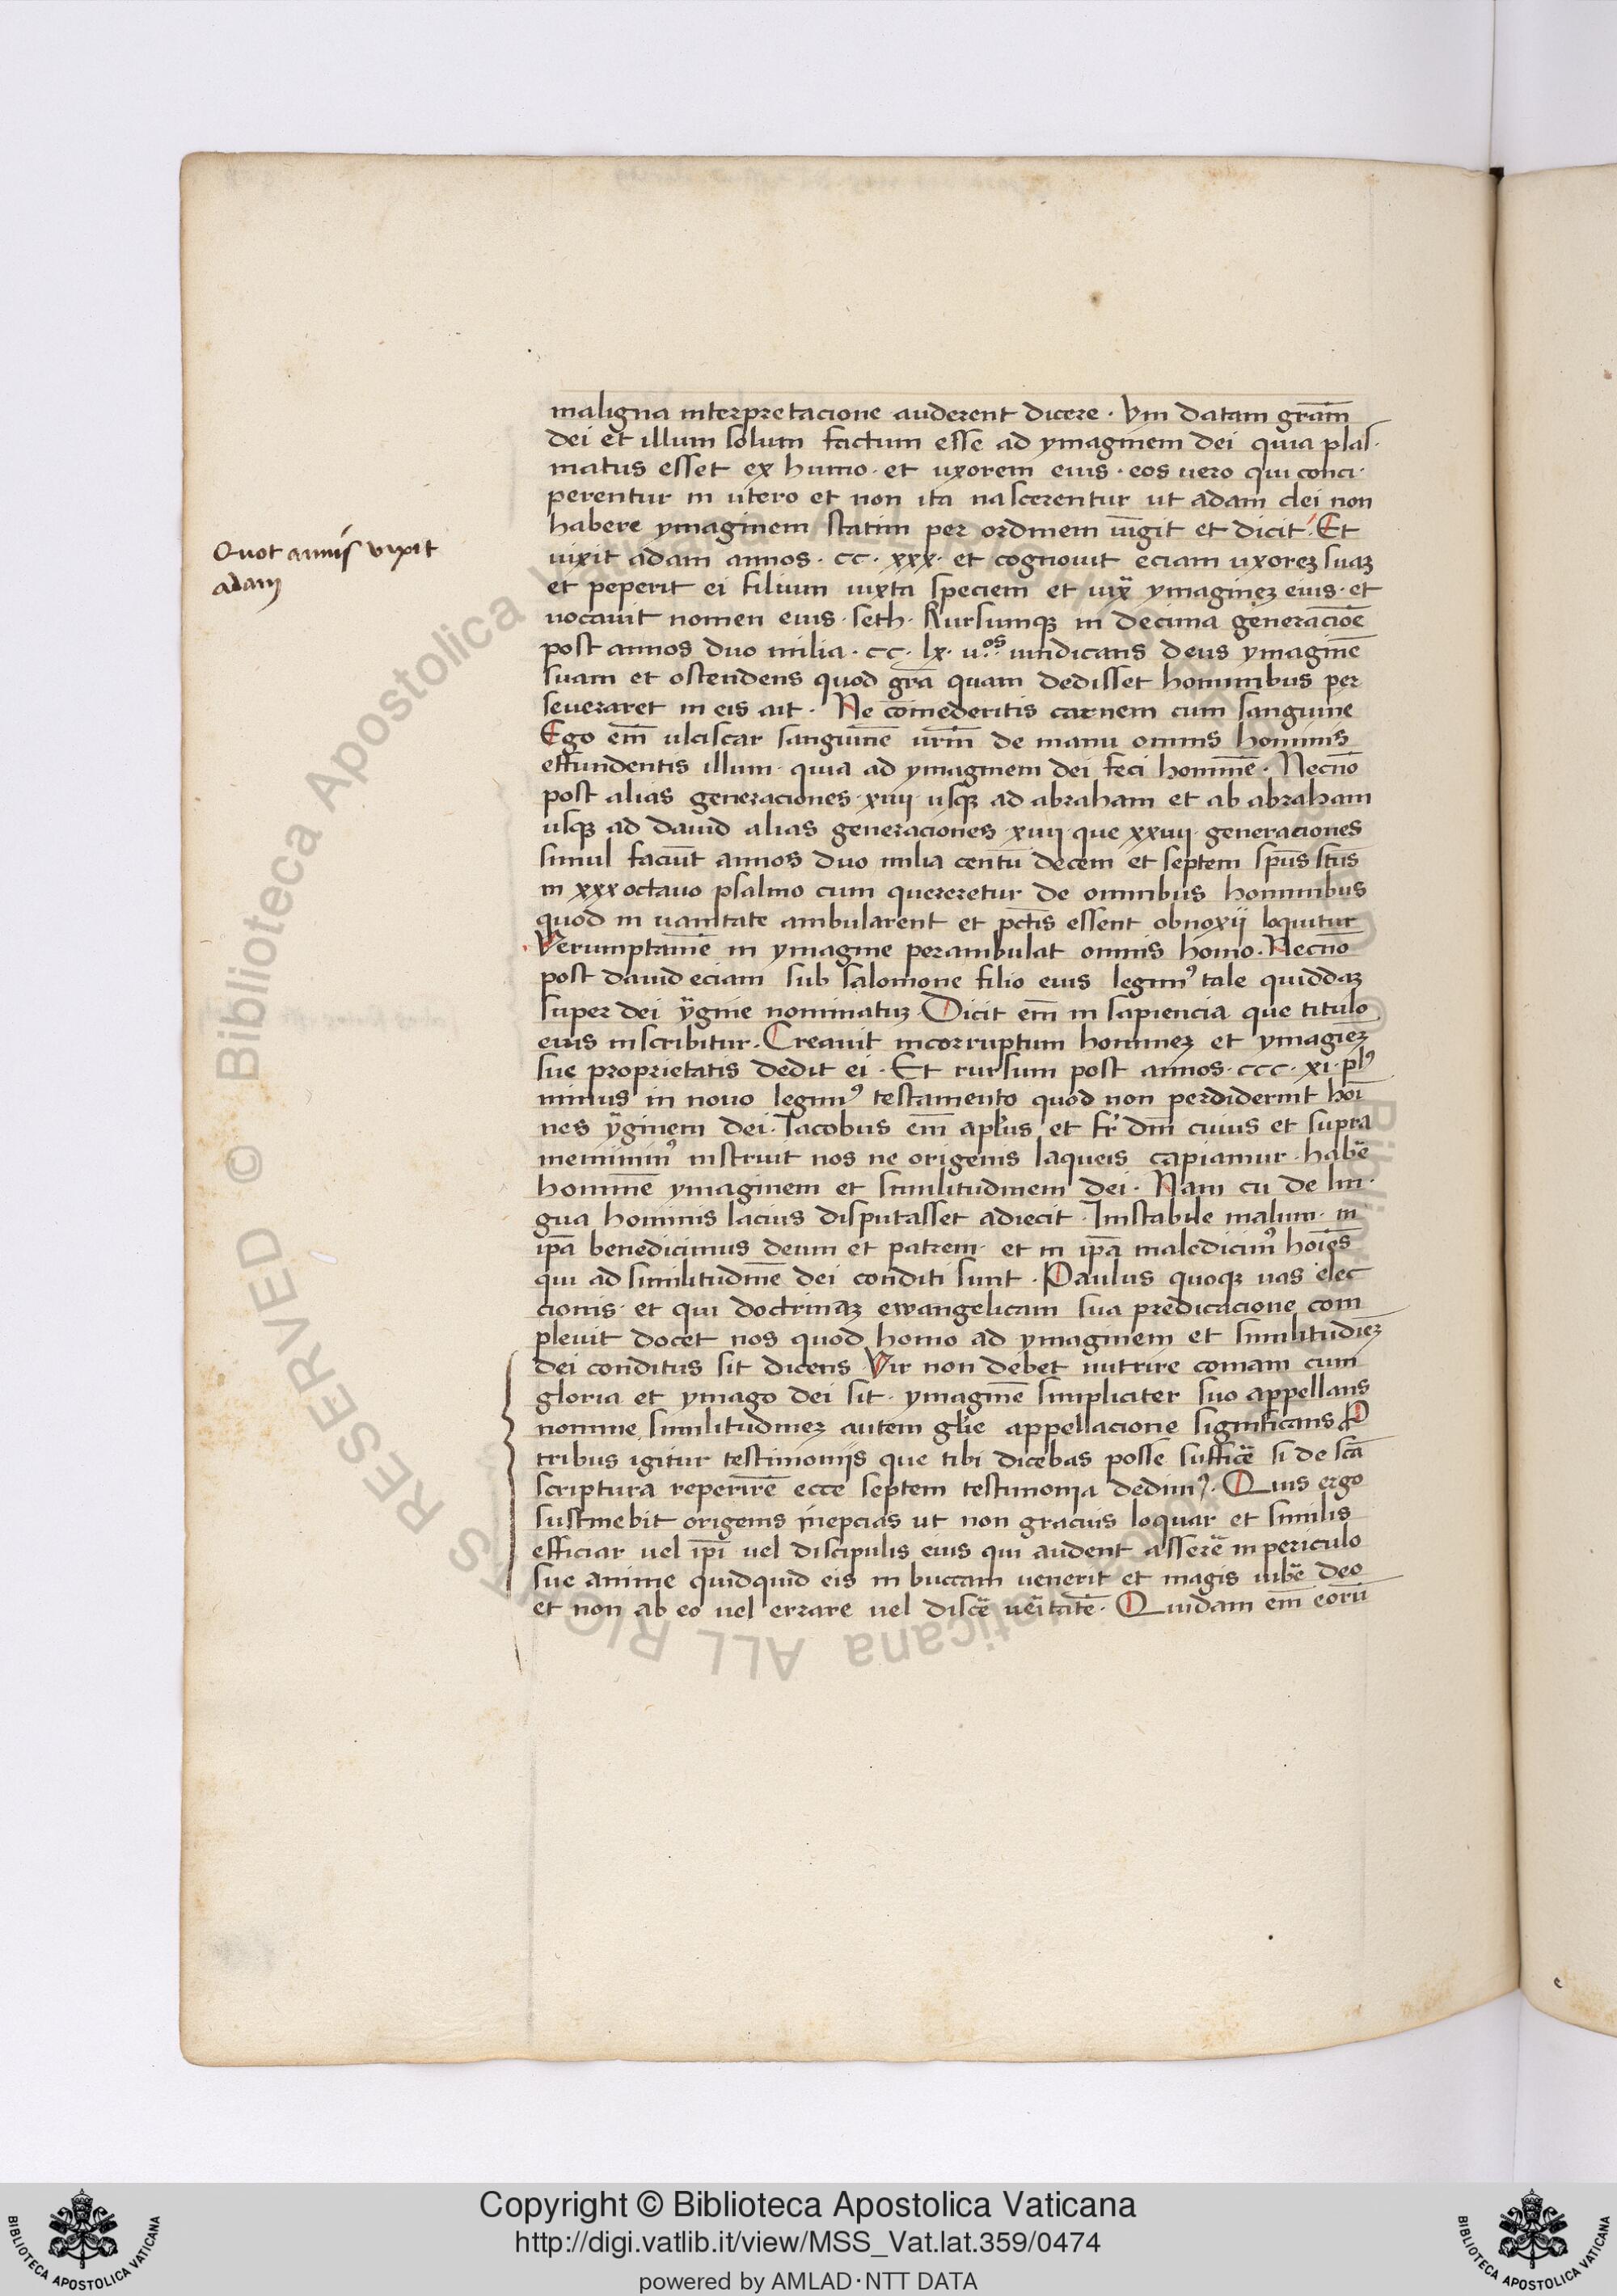 maligna interpretacione auderent dicere · Vni datam grãm
dei et illum solum factum esse ad ymaginem dei quia plas·
matus esset ex humo · et uxorem eius · eos uero qui conci·
perentur in utero et non ita nascerentur ut adam dei non
habere ymaginem statim per ordinem iũgit et dicit · Et
Quot annis vixit
adam
uixit adam annos · cc · xxx · et cognouit eciam uxorez suaz
et peperit ei filium iuxta speciem et iux̃ ymaginez eius · et
uocauit nomen eius · seth · Rursumqz in decima generacõe
post annos duo milia · cc · lx · u^os· uindicans deus ymaginẽ
suam et ostendens quod grã quam dedisset hominibus per
seueraret in eis ait · Ne cõmederitis carnem cum sanguine
Ego em̃ ulciscar sanguinẽ urm̃ de manu omnis hominis
effundentis illum · quia ad ymaginem dei feci hominẽ · Necnõ
post alias generaciones · xiiii · usqz ad abraham et ab abraham
usqz ad dauid alias generaciones · xiiii · que xxuiii · generaciones
simul faciũt annos duo milia centũ decem et septem sp̃us sc̃us
in xxx octauo psalmo cum quereretur de omnibus hominibus
quod in uanitate ambularent et pc̃tis essent obnoxii loquitur
Verumptamẽ in ymagine perambulat omnis homo · Necnõ
post dauid eciam sub salomone filio eius legim⁹ tale quiddaz
super dei ỹgine nominatuz · Dicit em̃ in sapiencia que titulo
eius inscribitur · Creauit incorruptum hominez et ymagiẽz
sue proprietatis dedit ei · Et rursum post annos · ccc · xi · pl⁹
minus in nouo legim⁹ testamento quod non perdiderint hoĩ
nes ỹginem dei · Iacobus em̃ apl̃us et fr̃ dm̃ cuius et supra
meminim⁹ instruit nos ne origenis laqueis capiamur · habẽ
hominẽ ymaginem et similitudinem dei · Nam cũ de lin·
gua hominis lacius disputasset adiecit · Instabile malum · in
ip̃a benedicimus deum et patrem · et in ip̃a maledicim⁹ hoĩes
qui ad similitudinẽ dei conditi sunt · Paulus quoqz uas elec
cionis · et qui doctrinaz ewangelicam sua predicacione com
pleuit docet nos quod homo ad ymaginem et similitudiẽz
dei conditus sit dicens · Vir non debet nutrire comam cum
gloria et ymago dei sit · ymaginẽ simpliciter suo appellans
nomine similitudinez autem gl̃ie appellacione significans P
tribus igitur testimoniis que tibi dicebas posse sufficẽ si de scã
scriptura reperirẽ ecce septem testimonia dedim⁹ · Quis ergo
sustinebit origenis inepcias ut non gracius loquar et similis
efficiar uel ip̃i uel discipulis eius qui audent asserẽ in periculo
sue anime quidquid eis in buccam uenerit et magis iubẽ deo
et non ab eo uel errare uel discẽ ueĩtatẽ · Quidam em̃ eorũ
Copyright © Biblioteca Apostolica Vaticana
http://digi.vatlib.it/view/MSS_Vat.lat.359/0474
powered by AMLAD·NTT DATA
BIBLIOTECA APOSTOLICA VATICANA
BIBLIOTECA APOSTOLICA VATICANA
© Biblioteca Apostolica Vaticana ALL RIGHTS RESERVED